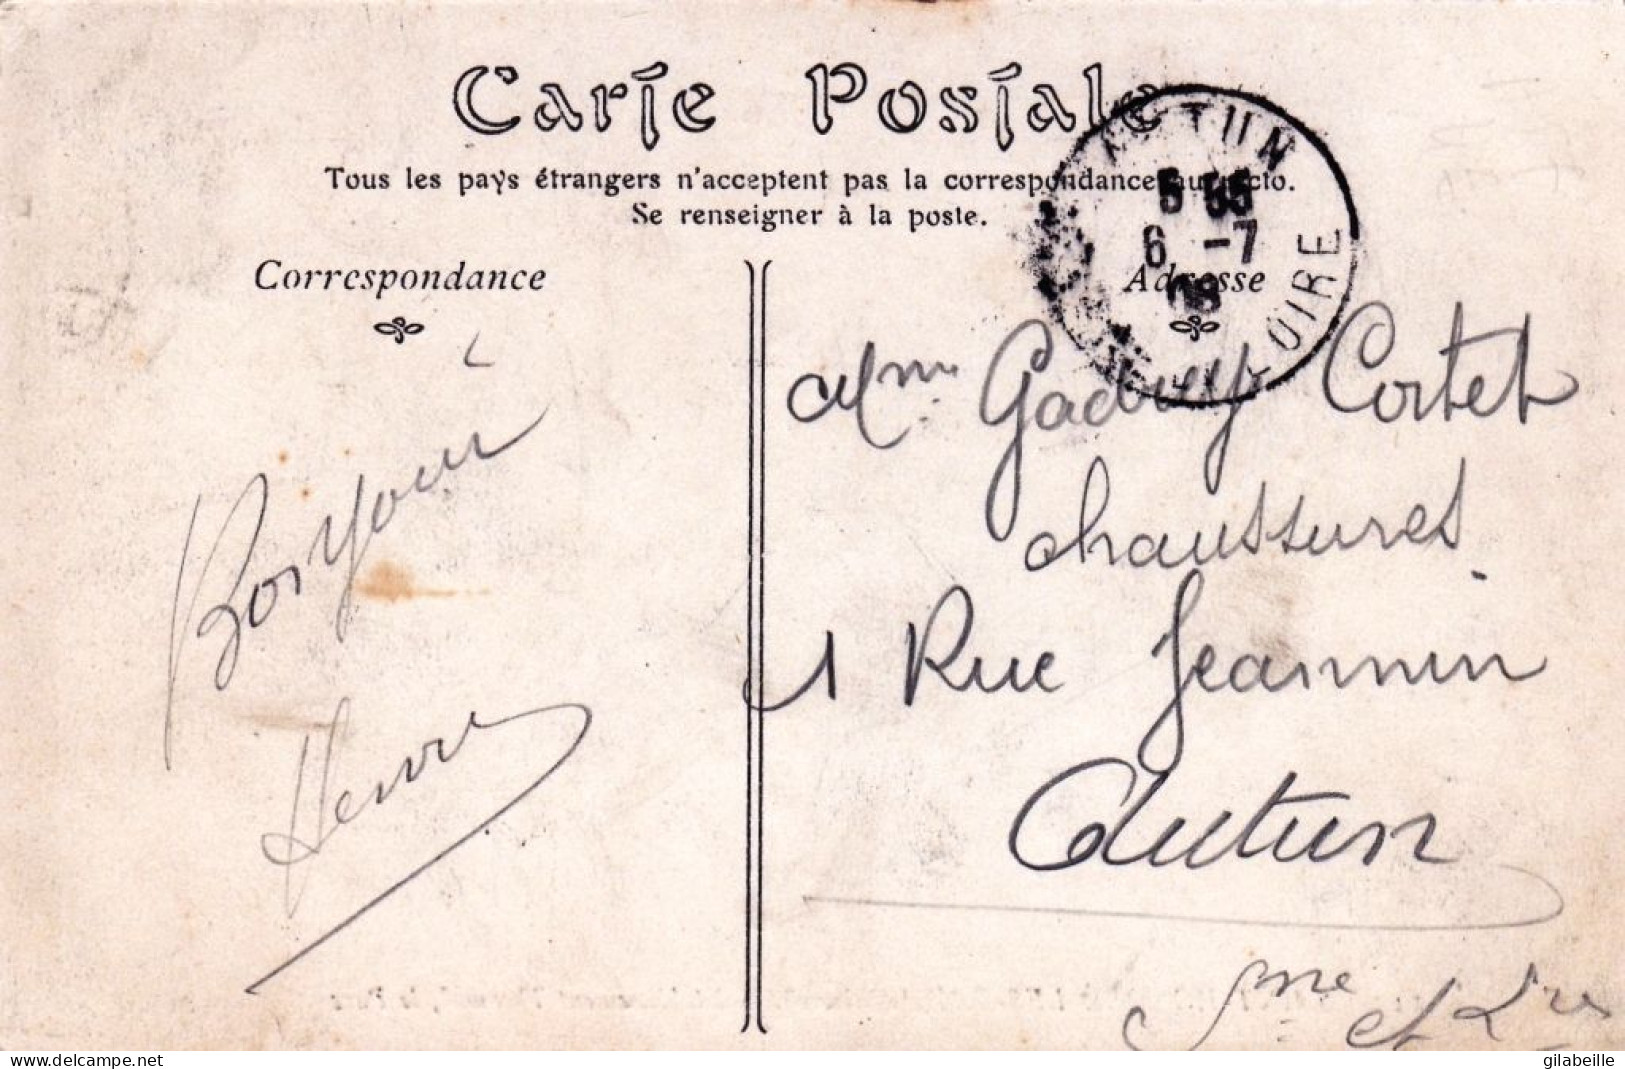 Carte Postale
Tous les pays étrangers n'acceptent pas la correspondance au recto.
Se renseigner à la poste.
Correspondance
Adresse
AUTUN
5 55
6 -7
08
LOIRE
Bonjour
Henri
Mme Cortet
chaussures
1 Rue Jeannin
Autun
Sne et Lre
www.delcampe.net
gilabeille